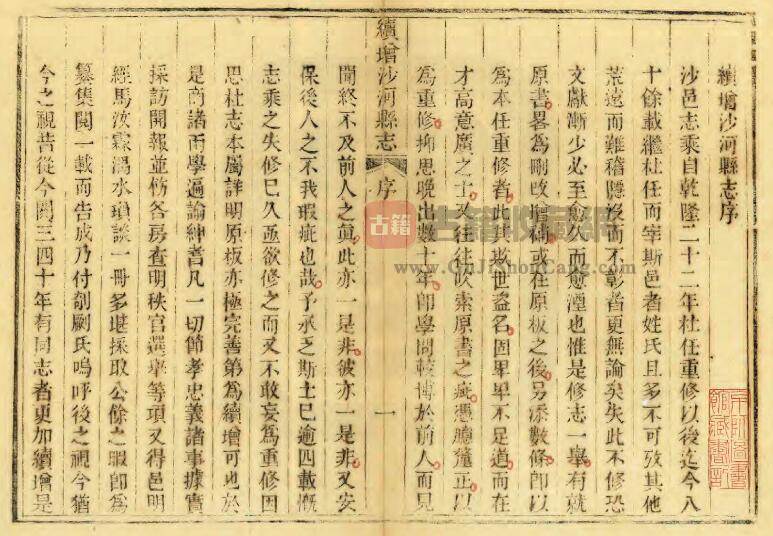 續增沙河縣志序
沙邑志乘自乾隆二十二年杜任重修以後迄今八
十餘載繼杜任而宰斯邑者姓氏且多不可攷其他
荒遠而難稽隱沒而不彰者更無論矣失此不修恐
文獻漸少必至愈久而愈湮也惟是修志一舉有就
原書畧為刪改增補或在原板之後另添數條即以
為本任重修者此其欺世盜名固卑卑不足道而在
才高意廣之士又往往吹索原書之疵憑臆釐正以
為重修抑思晚出數十年即學問較博於前人而見
續增沙河縣志 序 一
聞終不及前人之真此亦一是非彼亦一是非又安
保後人之不我瑕疵也哉予承乏斯土已逾四載慨
志乘之失修已久亟欲修之而又不敢妄為重修因
思杜志本屬詳明原板亦極完善第為續增可也於
是商諸兩學遍諭紳耆凡一切節孝忠義諸事據實
採訪開報並飭各房查明秩官選舉等項又得邑明
經馬汝霖渴水瑣談一冊多堪採取公餘之暇即為
纂集閱一載而告成乃付剞劂氏嗚呼後之視今猶
今之視昔從今閱三四十年有同志者更加續增是
古籍
古籍收藏网
www.GuJiShouCang.com